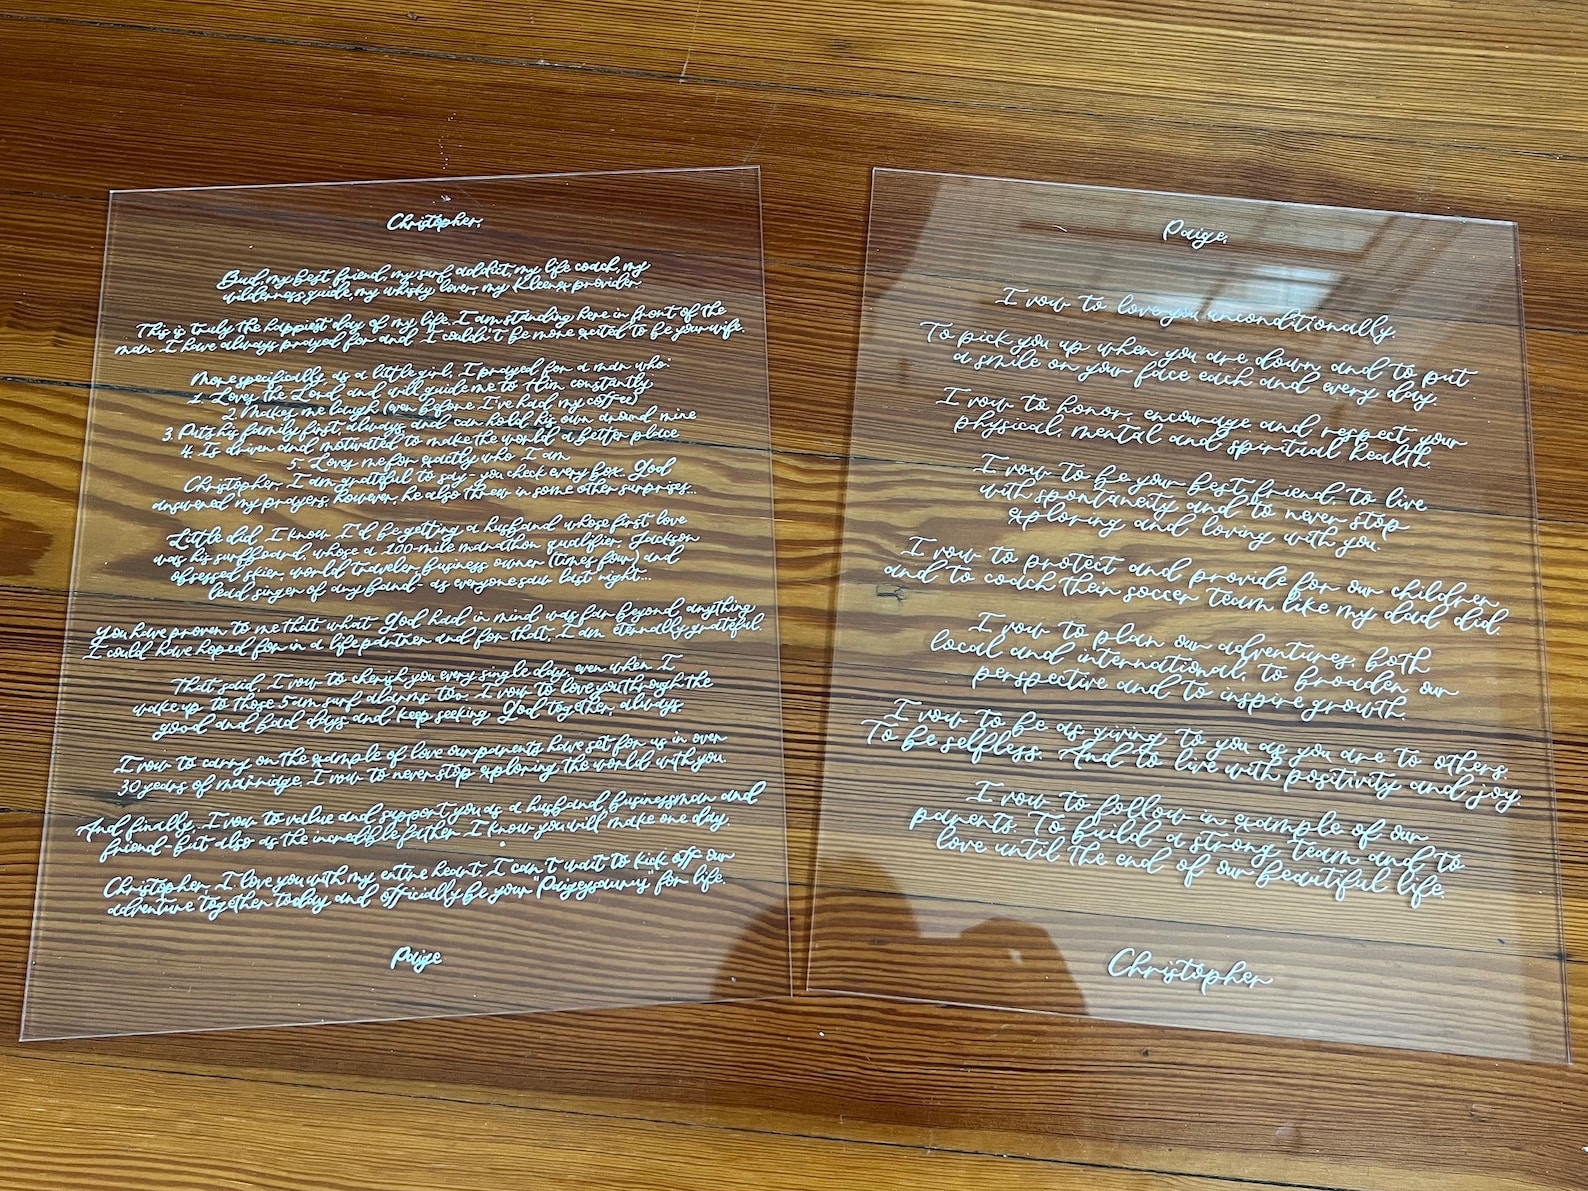 Christopher,
Bud, my best friend, my surf addict, my life coach, my
wilderness guide, my whisky lover, my Kleenex provider,
This is truly the happiest day of my life. I am standing here in front of the
man I have always prayed for and I couldn't be more excited to be your wife.
More specifically, as a little girl, I prayed for a man who:
1. Loves the Lord and will guide me to Him constantly
2. Makes me laugh (even before I've had my coffee)
3. Puts his family first always, and can hold his own around mine
4. Is driven and motivated to make the world a better place
5. Loves me for exactly who I am
Christopher, I am grateful to say - you check every box. God
answered my prayers, however, he also threw in some other surprises...
Little did I know I'd be getting a husband whose first love
was his surfboard, whose a 100-mile marathon qualifier, Jackson
obsessed skier, world traveler, business owner (times four) and
lead singer of any band - as everyone saw last night...
You have proven to me that what God had in mind was far beyond anything
I could have hoped for in a life partner and for that, I am eternally grateful.
That said, I vow to cherish you every single day, even when I
wake up to those 5am surf alarms too. I vow to love you through the
good and bad days and keep seeking God together, always.
I vow to carry on the example of love our parents have set for us in over
30 years of marriage. I vow to never stop exploring the world with you.
And finally, I vow to value and support you as a husband, businessman and
friend - but also as the incredible father I know you will make one day.
Christopher, I love you with my entire heart. I can't wait to kick off our
adventure together today and officially be your "Paigeysaurus" for life.
Paige
Paige,
I vow to love you unconditionally.
To pick you up when you are down, and to put
a smile on your face each and every day.
I vow to honor, encourage and respect your
physical, mental and spiritual health.
I vow to be your best friend. To live
with spontaneity and to never stop
exploring and loving with you.
I vow to protect and provide for our children,
and to coach their soccer team like my dad did.
I vow to plan our adventures, both
local and international, to broaden our
perspective and to inspire growth.
I vow to be as giving to you as you are to others.
To be selfless. And to live with positivity and joy.
I vow to follow in example of our
parents. To build a strong team and to
love until the end of our beautiful life.
Christopher